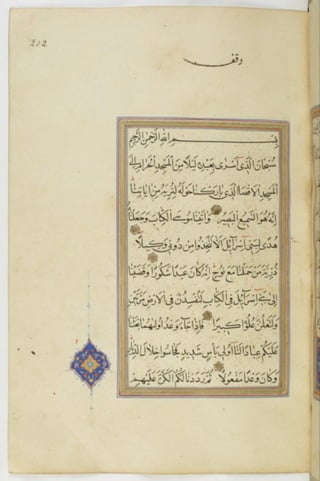 202
وقف
بسم الله الرحمن الرحيم
سبحان الذى اسرى بعبده ليلا من المسجد الحرام الى
المسجد الاقصا الذى باركنا حوله لنريه من اياتنا
انه هو السميع البصير واتينا موسى الكتاب وجعلناه
هدى لبنى اسرائيل الا تتخذوا من دونى وكيلا
ذرية من حملنا مع نوح انه كان عبدا شكورا وقضينا
الى بنى اسرائيل فى الكتاب لتفسدن فى الارض مرتين
ولتعلن علوا كبيرا فاذا جاء وعد اوليهما بعثنا
عليكم عبادا لنا اولى باس شديد فجاسوا خلال الديار
وكان وعدا مفعولا ثم رددنا لكم الكرة عليهم